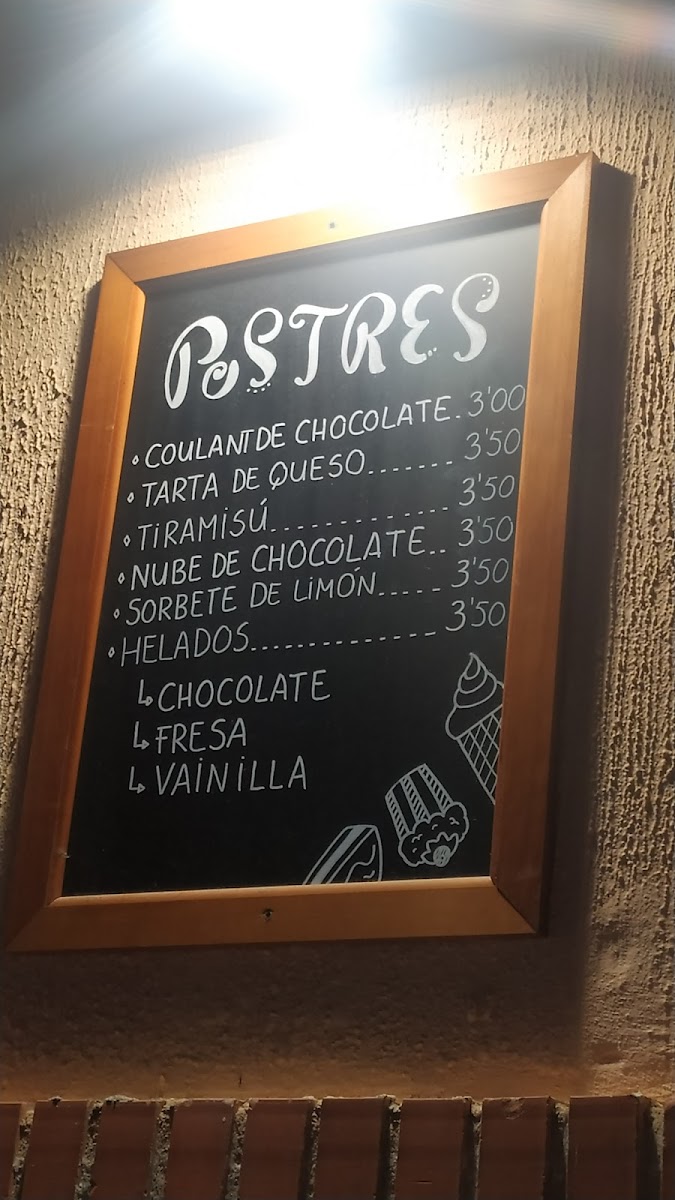 POSTRES
COULANT DE CHOCOLATE. 3'00
TARTA DE QUESO....... 3'50
TIRAMISÚ............. 3'50
NUBE DE CHOCOLATE.. 3'50
SORBETE DE LIMÓN..... 3'50
HELADOS.............. 3'50
↳ CHOCOLATE
↳ FRESA
↳ VAINILLA